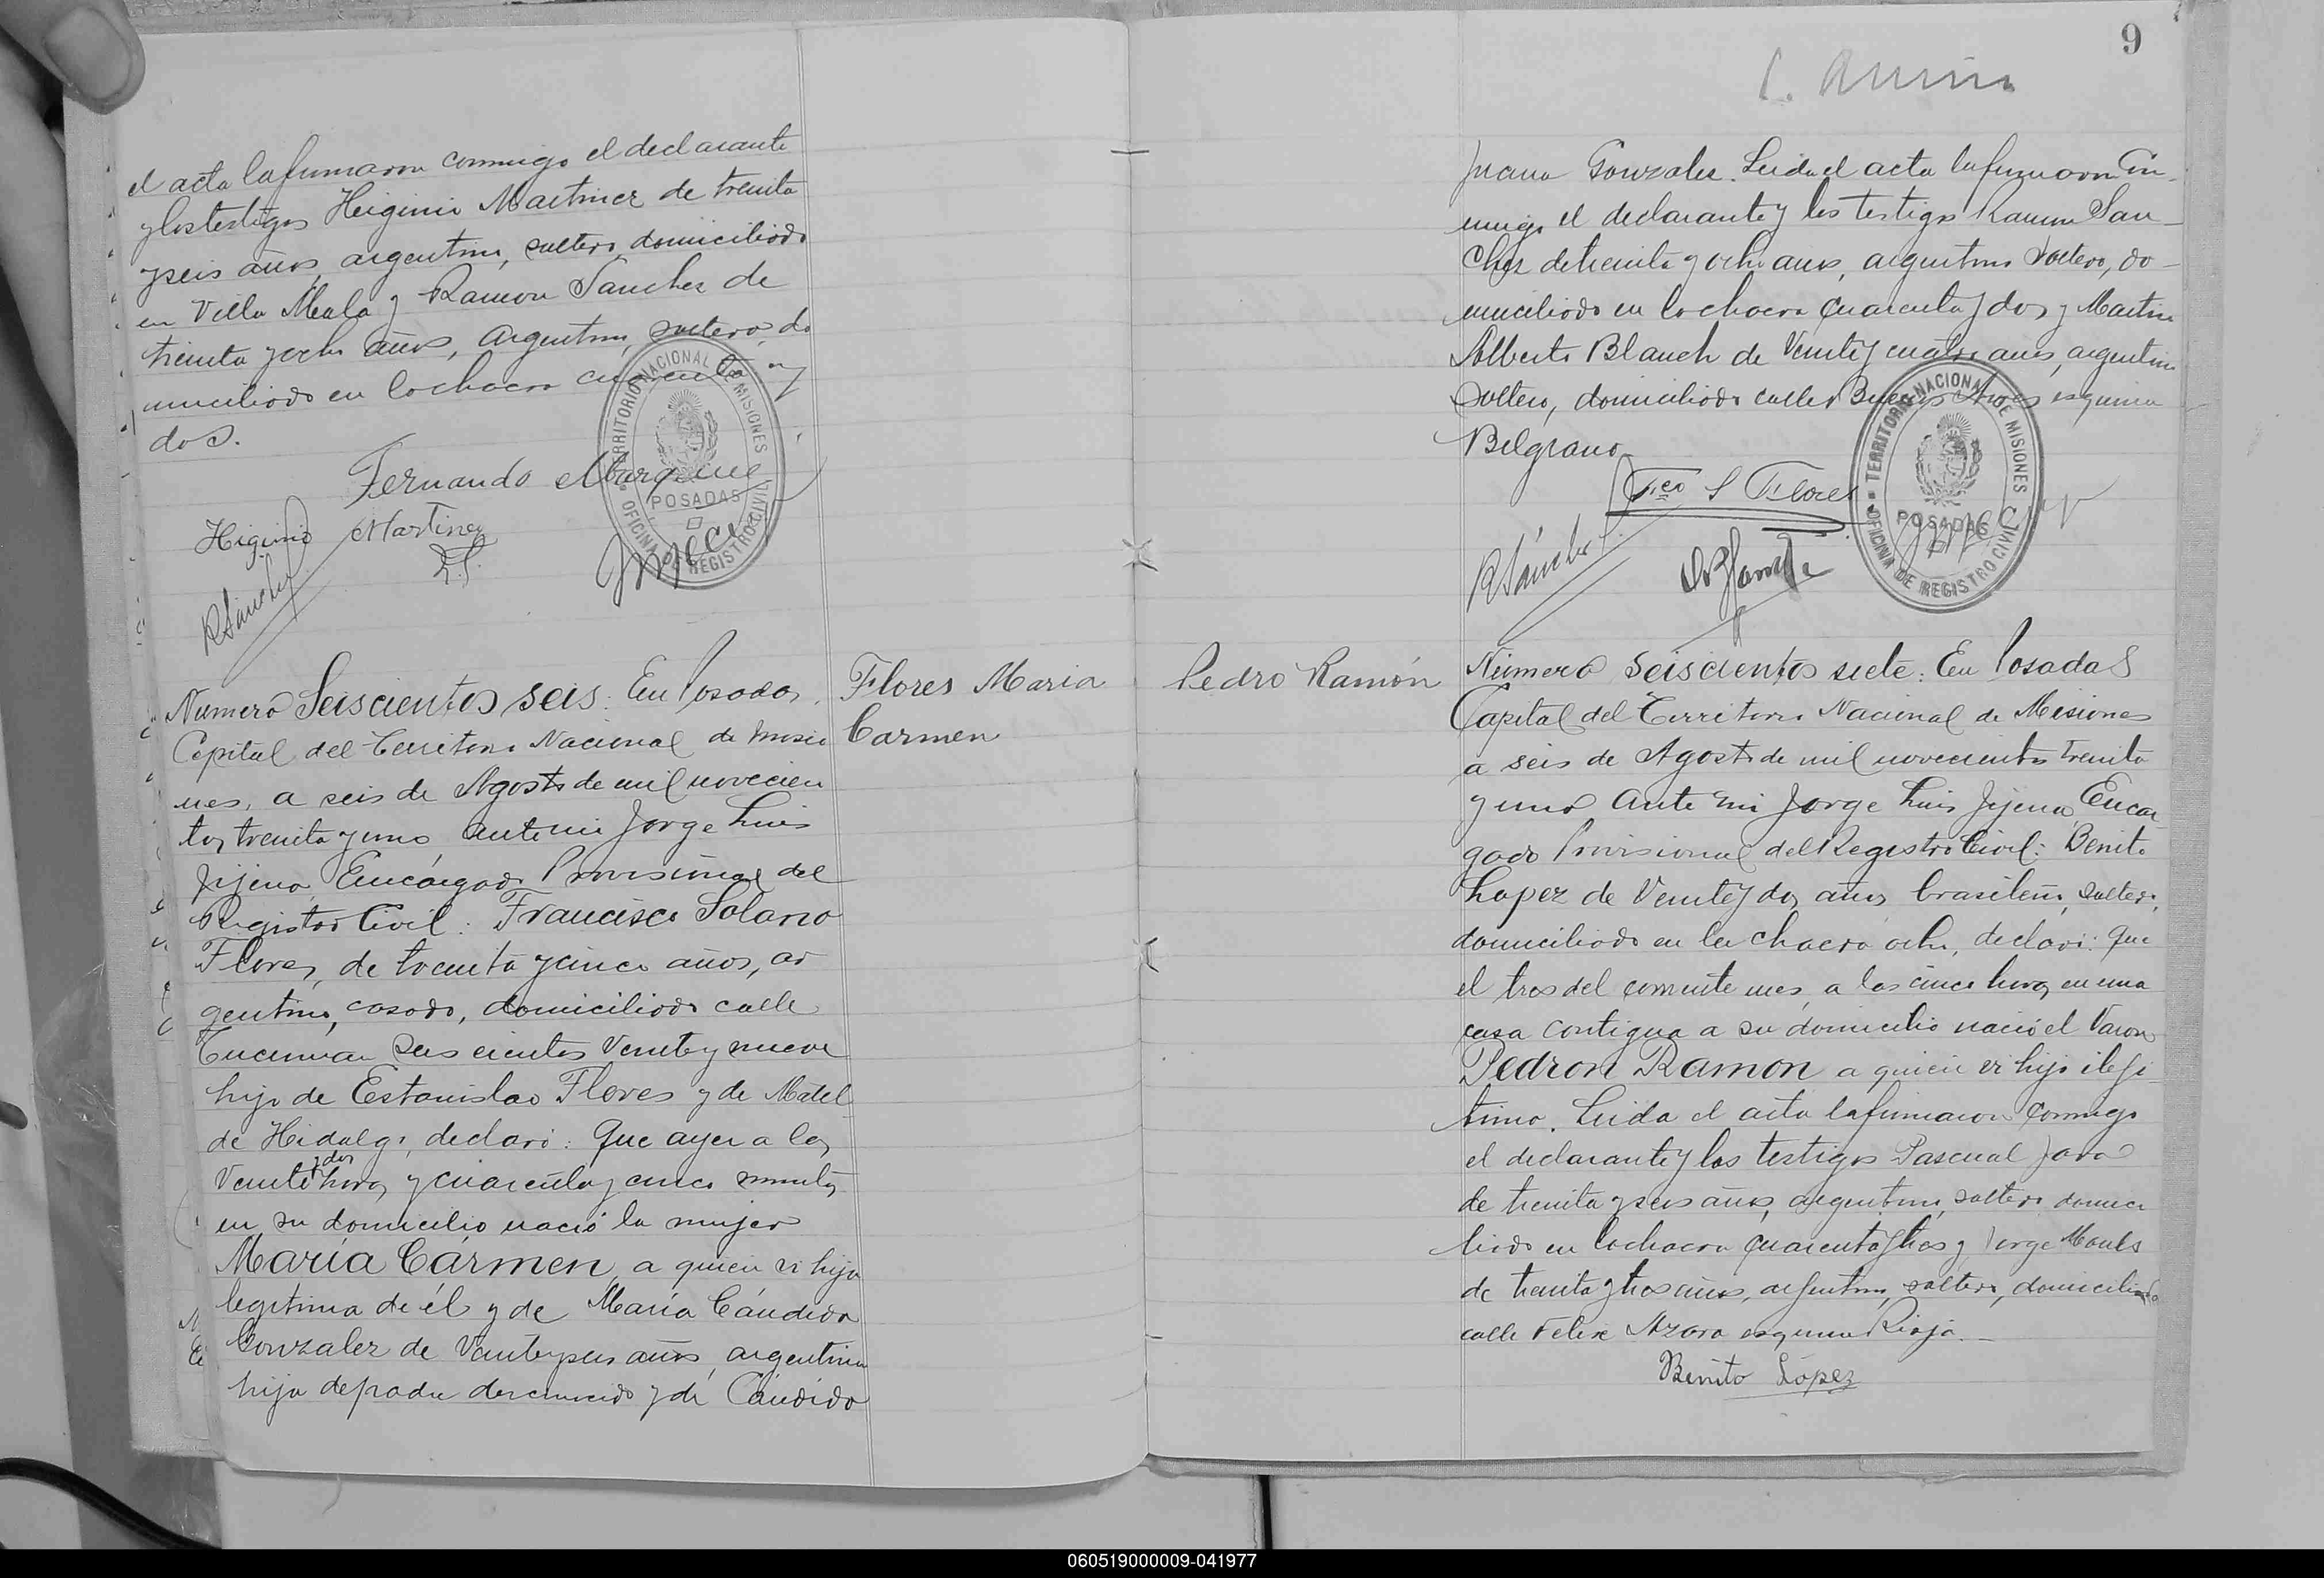 el acta la firmaron conmigo el declarante
y los testigos Heiginio Martinez de treinta
y seis años, argentino, soltero, domiciliado
en Villa Mala y Ramon Sanchez de
treinta y ocho años, argentino, soltero, do
miciliado en la chacra cuarenta y
dos.
TERRITORIO NACIONAL DE MISIONES
POSADAS
OFICINA DE REGISTRO CIVIL
Fernando
Higinio Martinez
R Sanchez
Numero Seiscientos seis: En Posadas,
Capital del Territorio Nacional de Misio
nes, a seis de Agosto de mil novecien
tos treinta y uno ante mi Jorge Luis
Jijena, Encargado Provisional del
Registro Civil: Francisco Solano
Flores, de treinta y cinco años, ar
gentino, casado, domiciliado calle
Tucuman Seiscientos Veinte y nueve
hijo de Estanislao Flores y de Matil
de Hidalgo, declaró: Que ayer a las
y dos
Veinte horas y cuarenta y cinco minutos
en su domicilio nació la mujer
María Cármen, a quien vi hija
legitima de él y de María Cándida
Gonzalez de Veinte y seis años, argentina
hija de padre desconocido y de Cándida
Flores Maria
Carmen
9
Juana Gonzalez. Leida el acta la firmaron con
migo el declarante y los testigos Ramon San
chez de treinta y ocho años, argentino soltero, do
miciliado en la chacra cuarenta y dos y Martin
Alberto Blanch de Veinte y cuatro años, argentino
soltero, domiciliado calle Buenos Aires esquina
Belgrano
Fco S Flores
TERRITORIO NACIONAL DE MISIONES
POSADAS
OFICINA DE REGISTRO CIVIL
R Sánchez
Pedro Ramón
Número Seiscientos siete: En Posadas
Capital del Territorio Nacional de Misiones
a seis de Agosto de mil novecientos treinta
y uno ante mi Jorge Luis Jijena, Encar
gado Provisional del Registro Civil: Benito
Lopez de Veinte y dos años brasileño, soltero,
domiciliado en la chacra ocho, declaró: Que
el tres del corriente mes, a las cinco horas en una
casa contigua a su domicilio nació el Varon
Pedron Ramon a quien vi hijo ilegi
timo. Leida el acta la firmaron conmigo
el declarante y los testigos Pascual Jara
de treinta y seis años, argentino, soltero domici
liado en la chacra cuarenta y tres y Jorge
de treinta y tres años, argentino, soltero, domiciliado
calle Felix Azara esquina Rioja.
Benito López
060519000009-041977